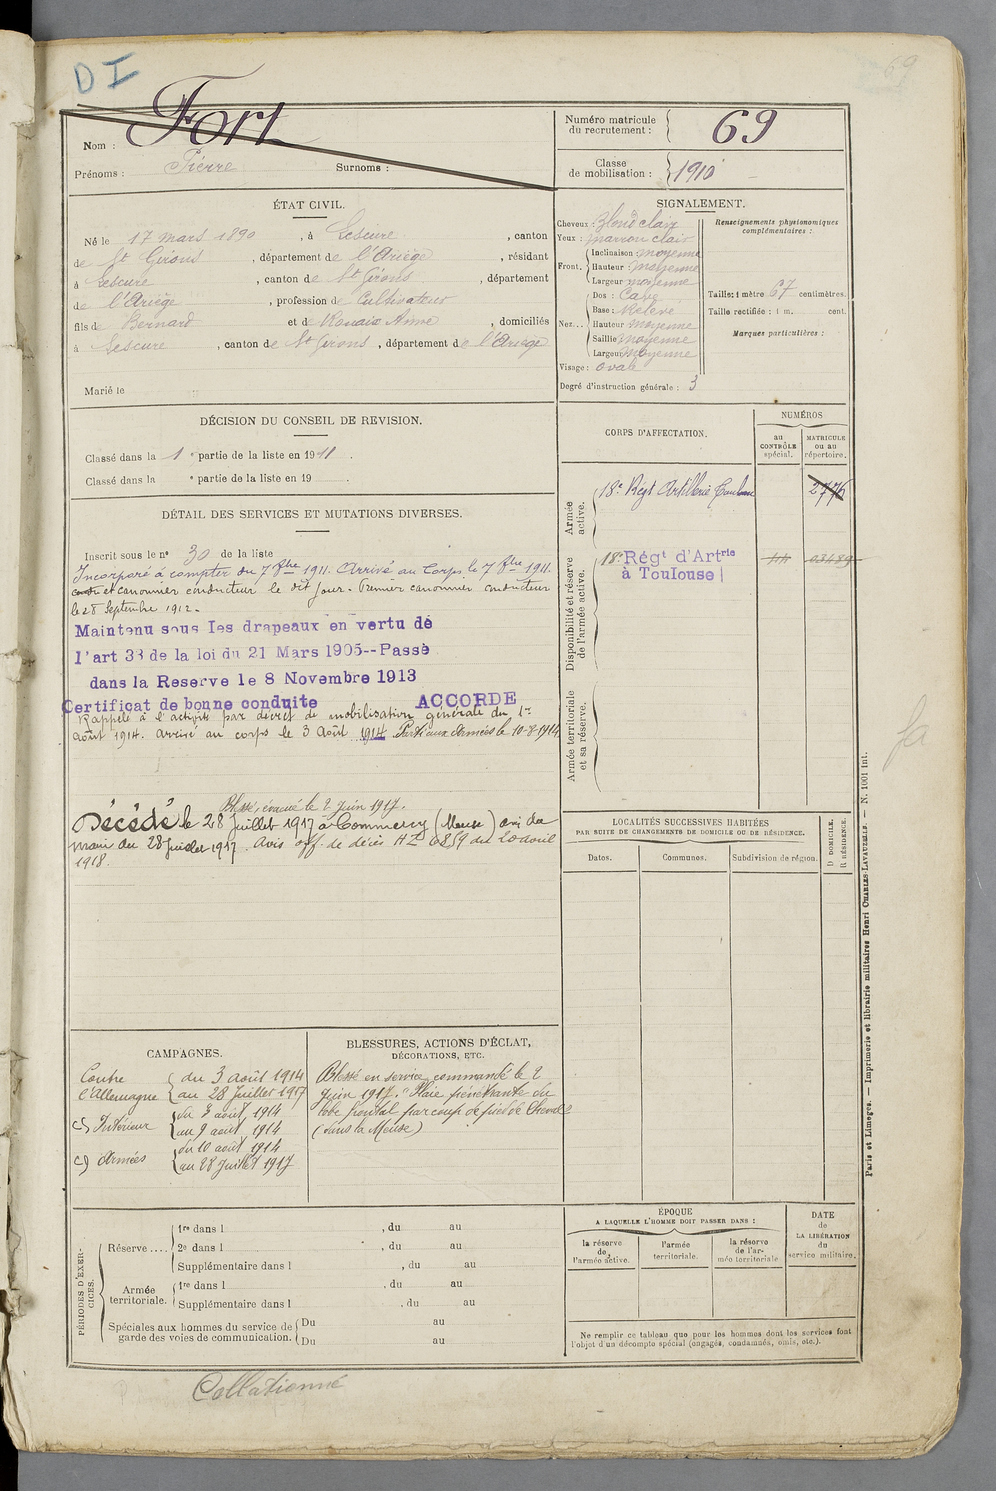 69
D I
Nom : Fort
Prénoms : Pierre Surnoms :
Numéro matricule du recrutement : 69
Classe de mobilisation : 1910
ÉTAT CIVIL.
Né le 17 mars 1890, à Lescure, canton
de St Girons, département de l'Ariège, résidant
à Lescure, canton de St Girons, département
de l'Ariège, profession de Cultivateur
fils de Bernard et de Rouaix Anne, domiciliés
à Lescure, canton de St Girons, département de l'Ariège
Marié le
SIGNALEMENT.
Cheveux : Blond clair
Yeux : marron clair
Front. Inclinaison moyenne
Hauteur : moyenne
Largeur moyenne
Nez... Dos : Cave
Base : Relevé
Hauteur moyenne
Saillie moyenne
Largeur moyenne
Visage : ovale
Degré d'instruction générale : 3
Renseignements physionomiques complémentaires :
Taille : 1 mètre 67 centimètres.
Taille rectifiée : 1 m. cent.
Marques particulières :
DÉCISION DU CONSEIL DE REVISION.
Classé dans la 1e partie de la liste en 1911.
Classé dans la e partie de la liste en 19 .
CORPS D'AFFECTATION.
NUMÉROS
au CONTRÔLE spécial.
MATRICULE ou au répertoire.
Armée active.
18e Régt Artillerie Toulouse 2776
Disponibilité et réserve de l'armée active.
18e Régt d'Artrie
à Toulouse
Armée territoriale et sa réserve.
DÉTAIL DES SERVICES ET MUTATIONS DIVERSES.
Inscrit sous le n° 30 de la liste
Incorporé à compter du 7 8bre 1911. Arrivé au Corps le 7 8bre 1911.
et canonnier conducteur le dit jour. Premier canonnier conducteur
le 28 Septembre 1912.
Maintenu sous les drapeaux en vertu de
l'art 33 de la loi du 21 Mars 1905--Passé
dans la Reserve le 8 Novembre 1913
Certificat de bonne conduite ACCORDE
Rappelé à l'activité par décret de mobilisation générale du 1er
août 1914. Arrivé au corps le 3 Août 1914 Parti aux Armées le 10-8-1914
Blessé, évacué le 2 Juin 1917.
Décédé le 28 Juillet 1917 à Commercy (Meuse) avis du
maire du 28 Juillet 1917. Avis off. de décès 6859 du 20 avril
1918.
LOCALITÉS SUCCESSIVES HABITÉES
PAR SUITE DE CHANGEMENTS DE DOMICILE OU DE RÉSIDENCE.
Dates. Communes. Subdivision de région.
D DOMICILE.
R RÉSIDENCE.
CAMPAGNES.
Contre l'Allemagne du 3 août 1914
au 28 Juillet 1917
Intérieur du 3 août 1914
au 9 août 1914
Armées du 10 août 1914
au 28 Juillet 1917
BLESSURES, ACTIONS D'ÉCLAT,
DÉCORATIONS, ETC.
Blessé en service commandé le 2
Juin 1917. "Plaie pénétrante du
lobe frontal par coup de pied de cheval"
(dans la Meuse)
PÉRIODES D'EXERCICES.
Réserve.... 1re dans l , du au
2e dans l , du au
Supplémentaire dans l , du au
Armée territoriale. 1re dans l , du au
Supplémentaire dans l , du au
Spéciales aux hommes du service de garde des voies de communication. Du au
Du au
ÉPOQUE
A LAQUELLE L'HOMME DOIT PASSER DANS :
la réserve de l'armée active.
l'armée territoriale.
la réserve de l'armée territoriale
DATE de LA LIBÉRATION du service militaire.
Ne remplir ce tableau que pour les hommes dont les services font
l'objet d'un décompte spécial (engagés, condamnés, omis, etc.).
Paris et Limoges. — Imprimerie et librairie militaires Henri CHARLES-LAVAUZELLE. — N. 1001 int.
Collationné